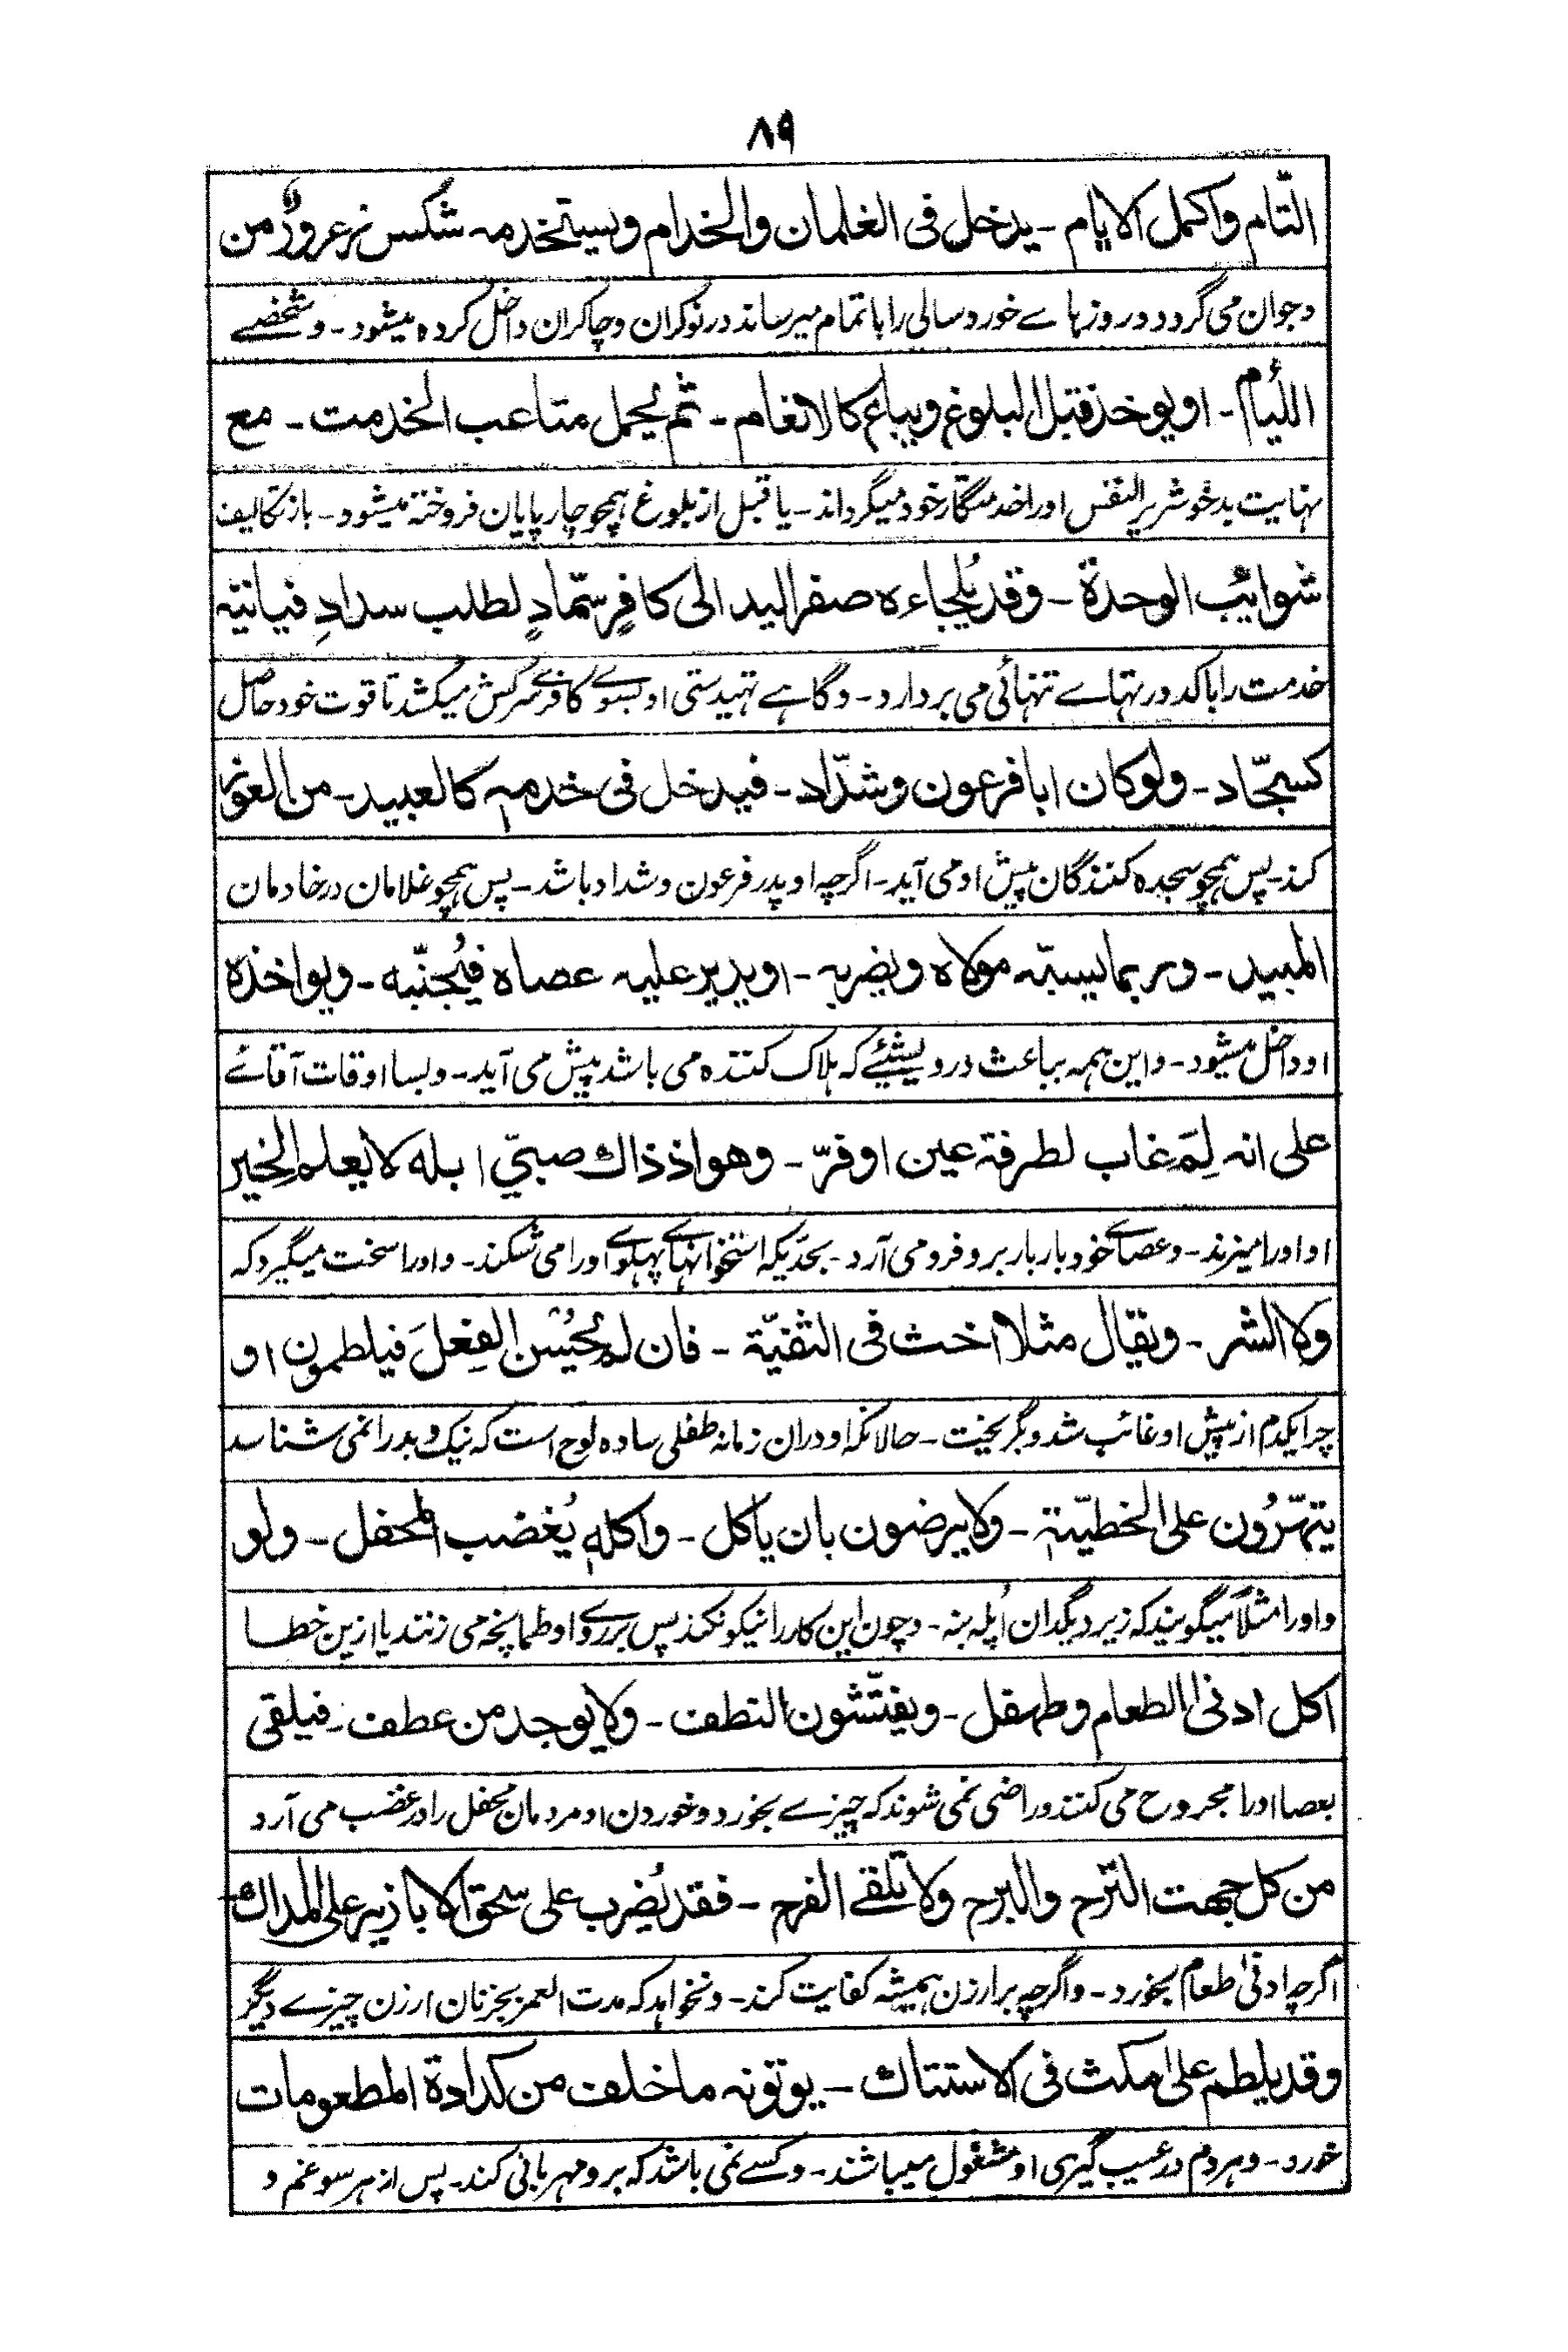 ٨٩
التّام واكمل الايام - يدخل فى الغلمان والخدام ويستخدمه شكس زعرورٌ من
وجوان می گردد و روزہاے خورد سالی را باتمام میرساند در نوکران و چاکران داخل کردہ میشود - و شخصے
اللئام - او يوخذ قبل البلوغ ويباع كالانعام - ثم يُحمل متاعب الخدمت - مع
نہایت بدخو شریر النفس اورا خدمتگار خود میگرداند - یا قبل از بلوغ ہمچو چارپایان فروختہ میشود - باز تکالیف
شوائب الوحدة - وقد يُلجاءه صفر اليد الى كافرٍ سمّادٍ لطلب سدادِ فياتيه
خدمت را باکدورتہاے تنہائی می بردارد - و گاہے تہیدستی او بسوے کافرے سرکش میکشد تا قوت خود حاصل
كسجّاد - ولو كان ابا فرعون وشدّاد - فيدخل فى خدمه كالعبيد - من العوز
کند - پس ہمچو سجدہ کنندگان پیش او می آید - اگرچہ او پدر فرعون و شداد باشد - پس ہمچو غلامان در خادمان
المبيد - وربما يسبّه مولاه ويضربه - او يدير عليه عصاه فيُجنّبه - ويواخذه
او داخل میشود - واین ہمہ بباعث درویشیئے کہ ہلاک کنندہ می باشد پیش می آید - و بسا اوقات آقائے
على انه لِمَ غاب لطرفة عين او فرّ - وهو اذ ذاك صبيّ ابله لا يعلم الخير
او اورا میزند - و عصاے خود بار بار برو فرو می آرد - بحدیکہ استخوانہاے پہلوے اورا می شکند - و اورا سخت میگیرد کہ
ولا الشر - ويقال مثلا اخث فى الثفيّة - فان لم يُحسن الفِعلَ فيلطمون او
چرا یکدم از پیش او غائب شد و بگریخت - حالانکہ او دران زمانہ طفلی سادہ لوح است کہ نیک و بد را نمی شناسد
يتهرّؤن على الخطيّة - ولا يرضون بان ياكل - واكله يُغضب المحفل - ولو
و اورا مثلاً میگویند کہ زیر دیگدان اُپلہ بنہ - و چون این کار را نیکو نکند پس بر روے او طمانچہ می زنند یا ازین خطا
اكل ادنى الطعام وطهقل - ويفتّشون النطف - ولا يوجد من عطف - فيلقى
بعصا اورا مجروح می کنند و راضی نمی شوند کہ چیزے بخورد و خوردن او مردمان محفل را در غضب می آرد
من كل جهت الترح والبرح ولا تلقى الفرح - فقد يُضرب على سحق الابازير على المداك
اگرچہ ادنیٰ طعام بخورد - و اگرچہ برارزن ہمیشہ کفایت کرند - و نخواہد کہ مدت العمر بجز نان ارزن چیزے دیگر
وقد يلطم على مكث فى الاستتاك - يوتونه ما خلف من كدادة المطعومات
خورد - و ہردم در عیب گیری او مشغول میباشند - و کسے نمی باشد کہ برو مہربانی کند - پس از ہر سو غم و